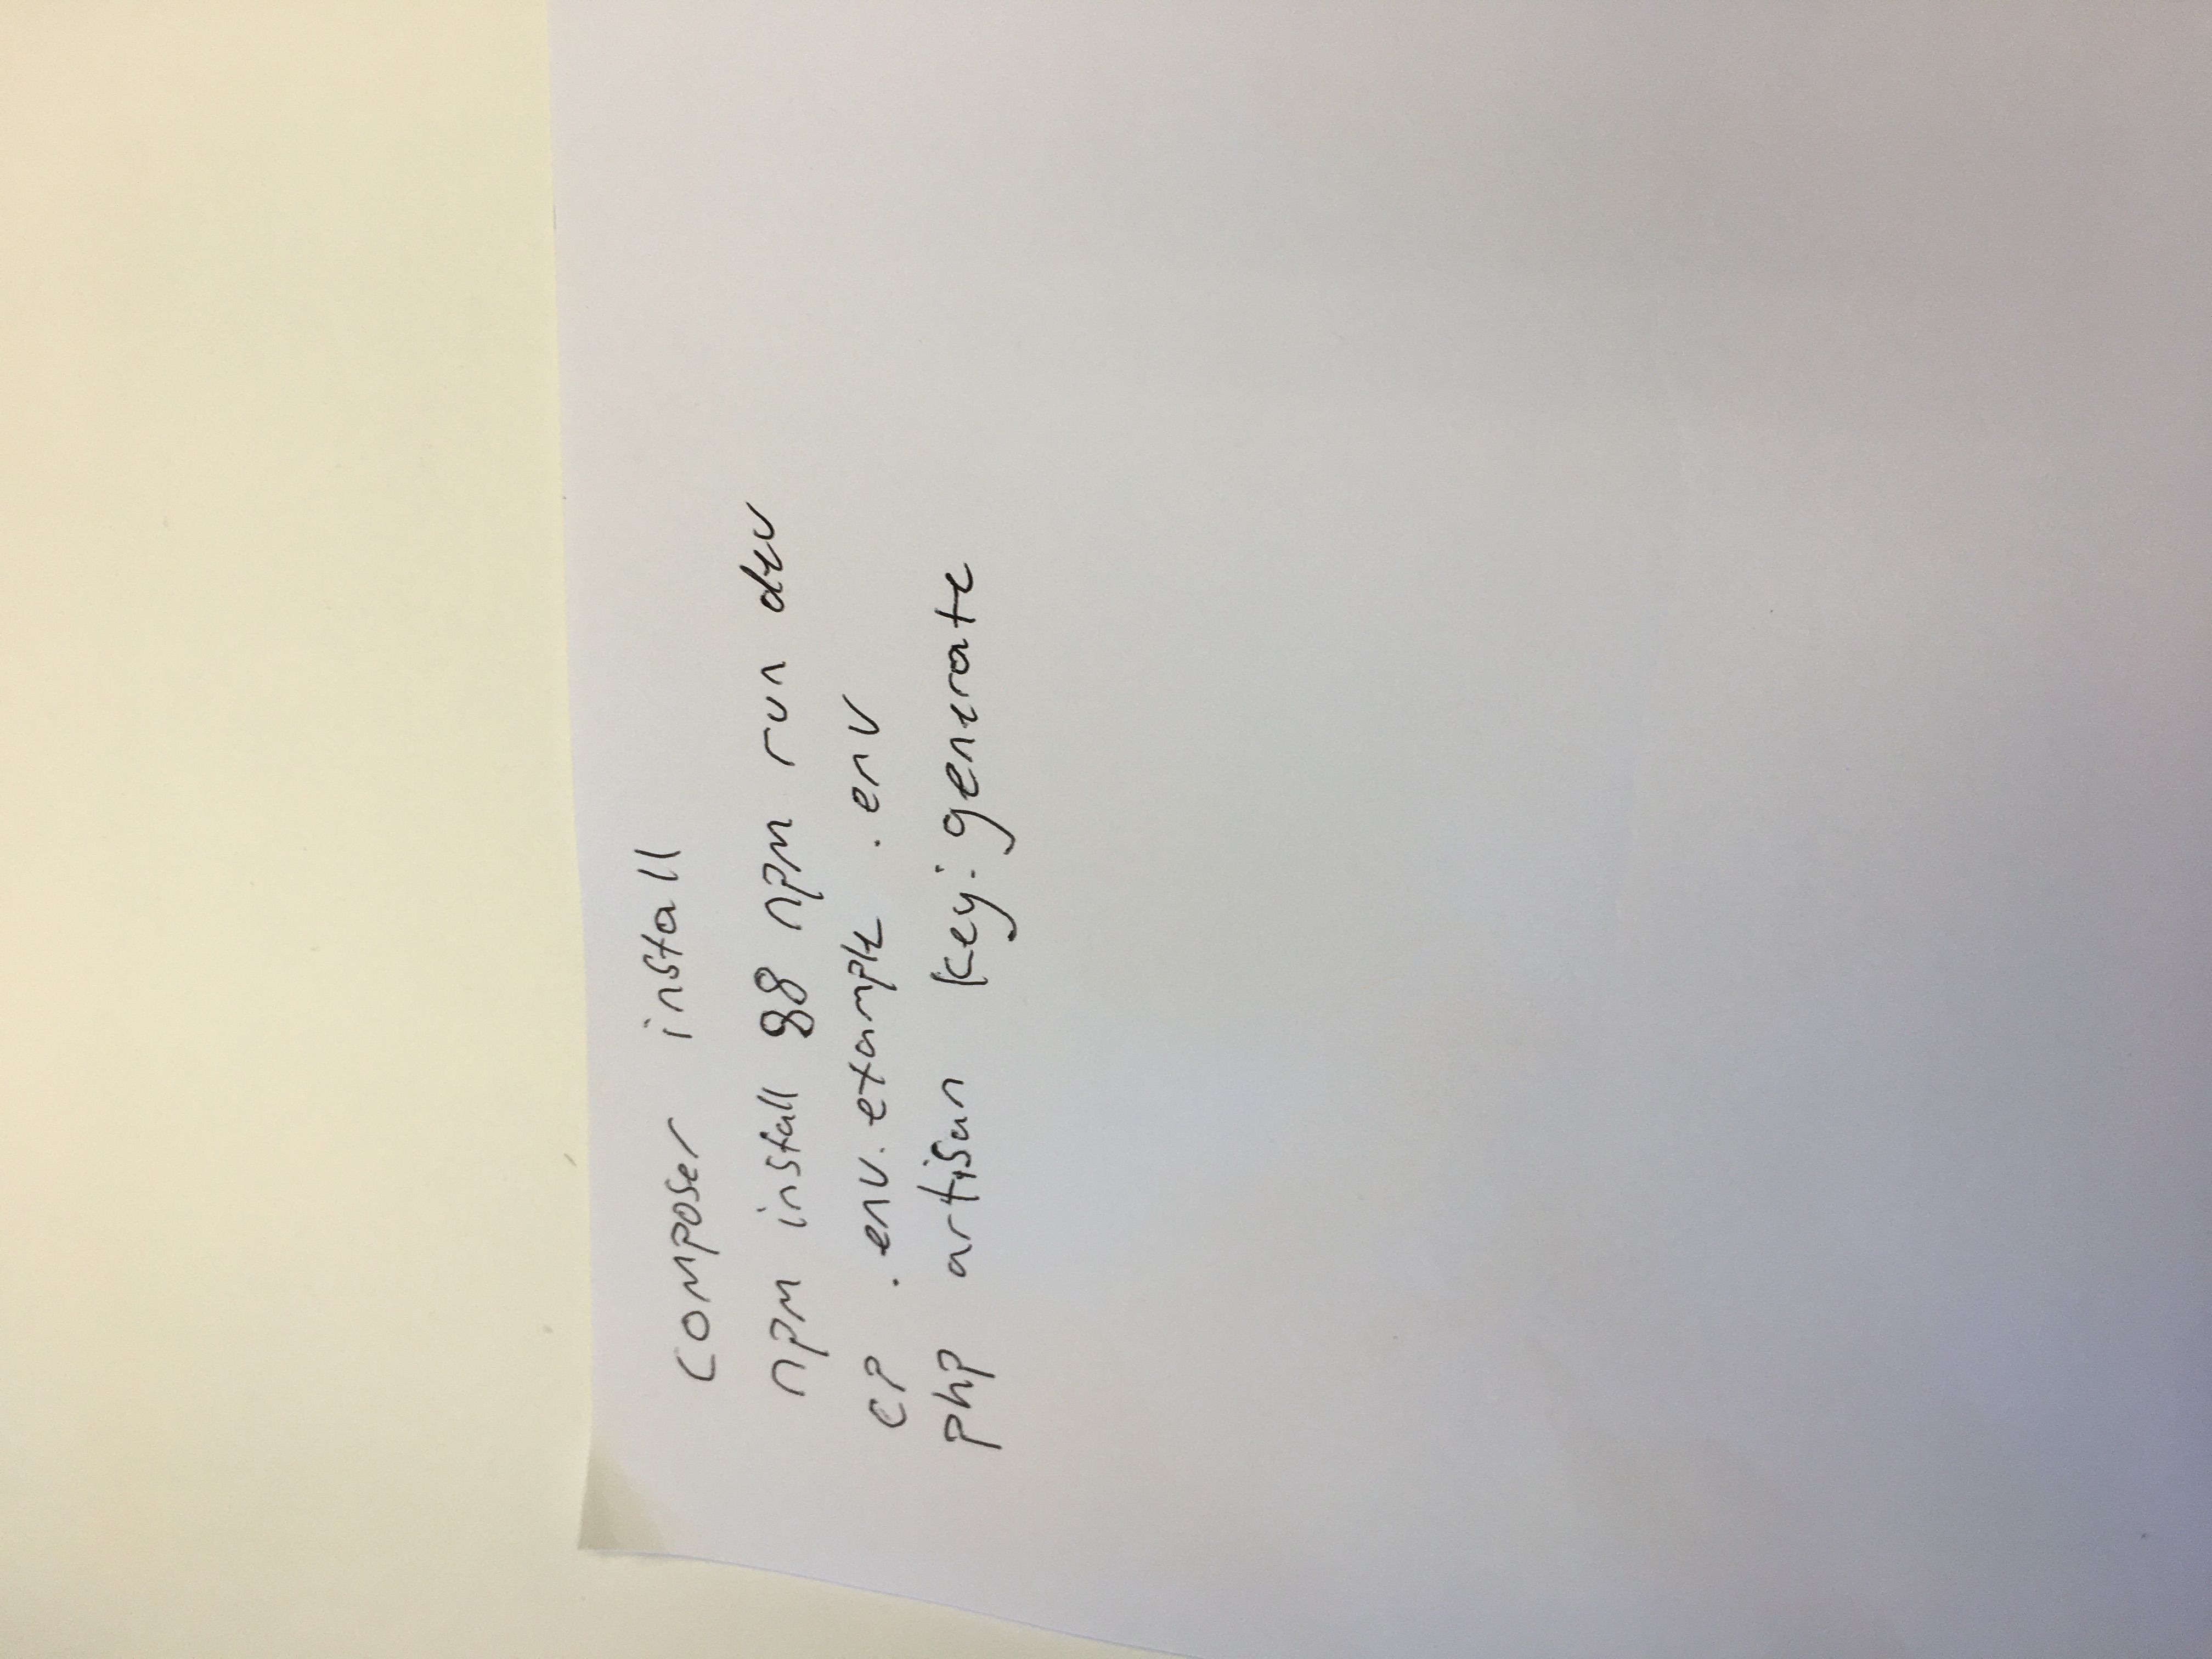 composer install
npm install && npm run dev
cp .env.example .env
php artisan key:generate